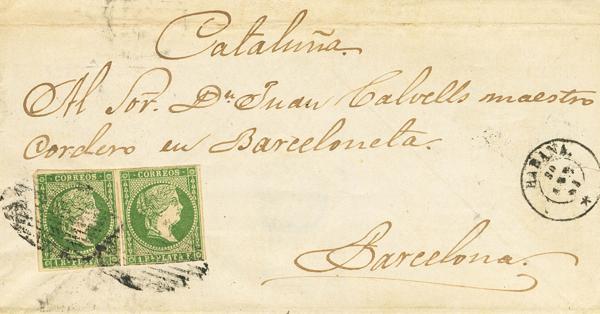 Cataluña.
Al Sor. Dn. Juan Calvells maestro
Cordero en Barceloneta.
CORREOS CORREOS
1 RL PLATA F. 1 RL PLATA F.
HABANA
Barcelona.